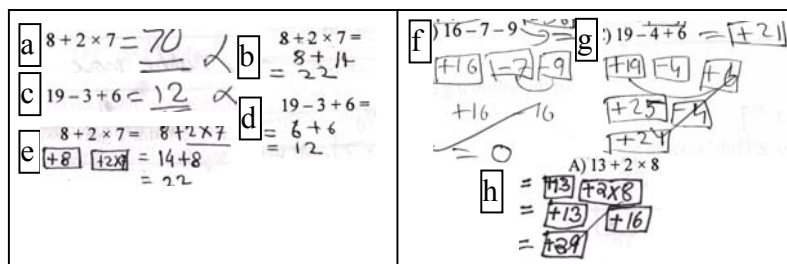 a 8 + 2 × 7 = 70
c 19 – 3 + 6 = 12
b 8 + 2 × 7 =
8 + 14
= 22
d 19 – 3 + 6 =
= 6 + 6
= 12
e 8 + 2 × 7 = 8 + 2 × 7
+8 +2×7 = 14 + 8
= 22
f ) 16 – 7 – 9 =
+16 –7 –9
+16 – 16
= 0
g ) 19 – 4 + 6 = +21
+19 –4 +6
+25 –4
+21
h A) 13 + 2 × 8
= +13 +2×8
= +13 +16
= +29